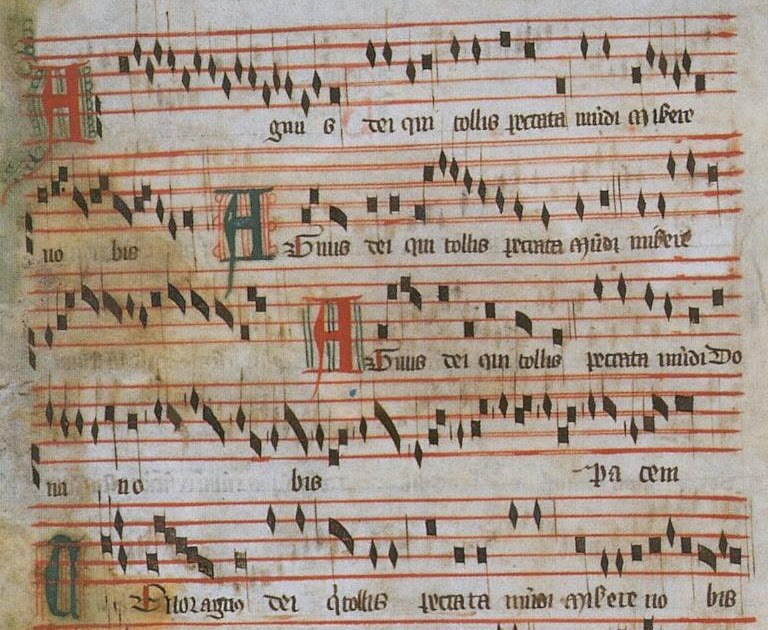 A gnu s dei qui tollis peccata mūdi Misere
no bis A Gnus dei qui tollis peccata Mūdi misere
A Gnus dei qui tollis peccata mūdi Do
na no bis Pa cem
Tenor agnus dei q tollis peccata mūdi Misere no bis